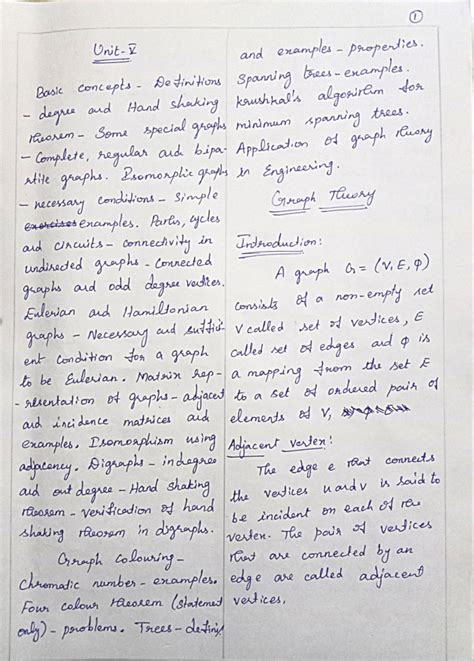 1
Unit-V
Basic concepts - Definitions
- degree and Hand shaking
theorem - Some special graphs
- Complete, regular and bipar-
tite graphs. Isomorphic graphs
- necessary conditions - Simple
exercises examples. Paths, cycles
and circuits - connectivity in
undirected graphs - connected
graphs and odd degree vertices.
Eulerian and Hamiltonian
graphs - Necessary and suffici-
ent condition for a graph
to be Eulerian. Matrix rep-
-resentation of graphs - adjacent
and incidence matrices and
examples. Isomorphism using
adjacency. Digraphs - indegree
and out degree - Hand shaking
theorem - verification of hand
shaking theorem in digraphs.
Graph Colouring -
Chromatic number - examples.
Four colour theorem (statement
only) - problems. Trees - defini
and examples - properties.
Spanning trees - examples.
Krushkal's algorithm for
minimum spanning trees.
Application of graph theory
in Engineering.
Graph Theory
Introduction:
A graph G = (V, E, φ)
consists of a non-empty set
V called set of vertices, E
called set of edges and φ is
a mapping from the set E
to a set of ordered pair of
elements of V,
Adjacent vertex:
The edge e that connects
the vertices u and v is said to
be incident on each of the
vertex. The pair of vertices
that are connected by an
edge are called adjacent
vertices.